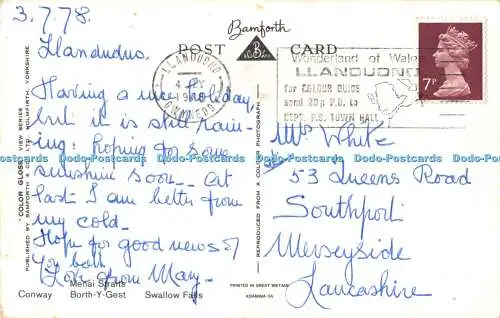 3.7.78.
Llandudno.
Having a nice holiday,
but it is still rain-
ing: hoping for some
sunshine soon -- at
last I am better from
my cold.
Hope for good news of
you both
Love from Mary.
Menai Straits
Conway Borth-Y-Gest Swallow Falls
"COLOR GLOSS" VIEW SERIES
PUBLISHED BY BAMFORTH & CO. LTD., HOLMFIRTH, YORKSHIRE.
Bamforth
B
POST CARD
REPRODUCED FROM A COLOUR PHOTOGRAPH
PRINTED IN GREAT BRITAIN
LLANDUDNO
GWYNEDD
Wonderland of Wales
LLANDUDNO
for COLOUR GUIDE
send 20p P.O. to
DEPT. P.S. TOWN HALL
7P
Mrs White
53 Queens Road
Southport
Merseyside
Lancashire
Dodo-Postcards Dodo-Postcards Dodo-Postcards Dodo-Postcards Dodo-Postcards Dodo-Postcards